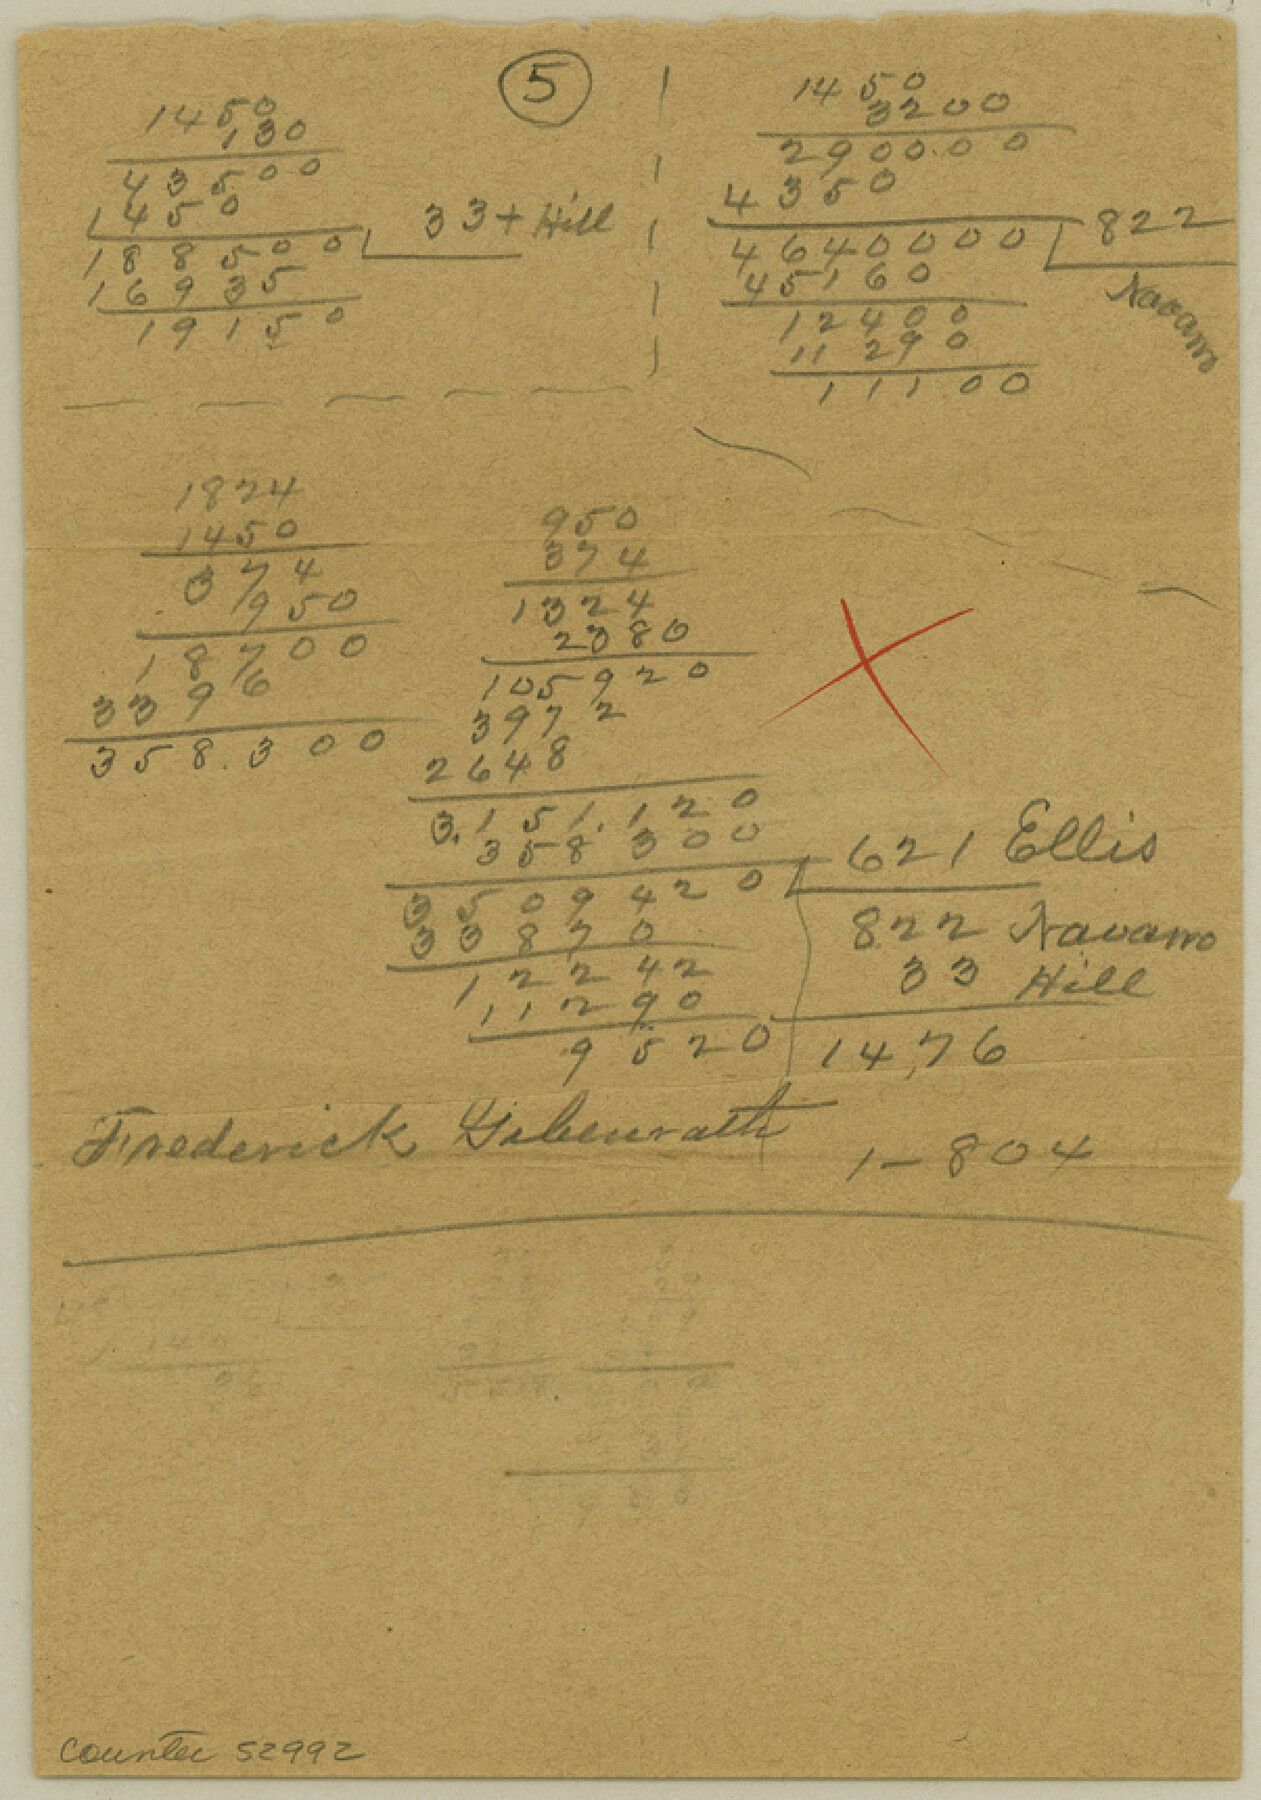 5
1450
130
43500
1450
188500 33+ Hill
16935
19150
1450
3200
290000
4350
4640000 822
45160 Navarro
12400
11290
11100
1824
1450
374
950
18700
3396
358.300
950
374
1324
2380
105920
3972
2648
3.151.120
358 300
3509420 621 Ellis
33870 822 Navarro
12242 33 Hill
11290
9520 1476
Frederick
1-804
Counter 52992